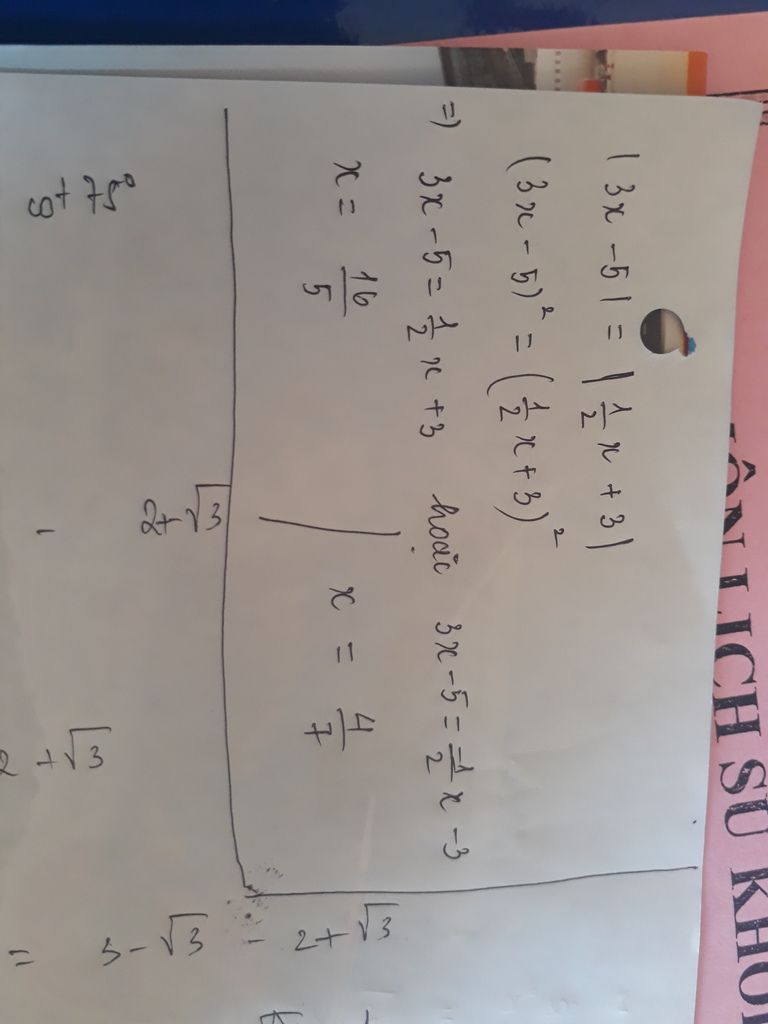 |3x - 5| = |1/2 x + 3|
(3x - 5)² = (1/2 x + 3)²
=) 3x - 5 = 1/2 x + 3 hoặc 3x - 5 = -1/2 x - 3
x = 16/5 x = 4/7
2+√3
3 - √3 - 2+√3
=
2 + √3
-
g+ 75°
ÔN LỊCH SỬ KHỐI